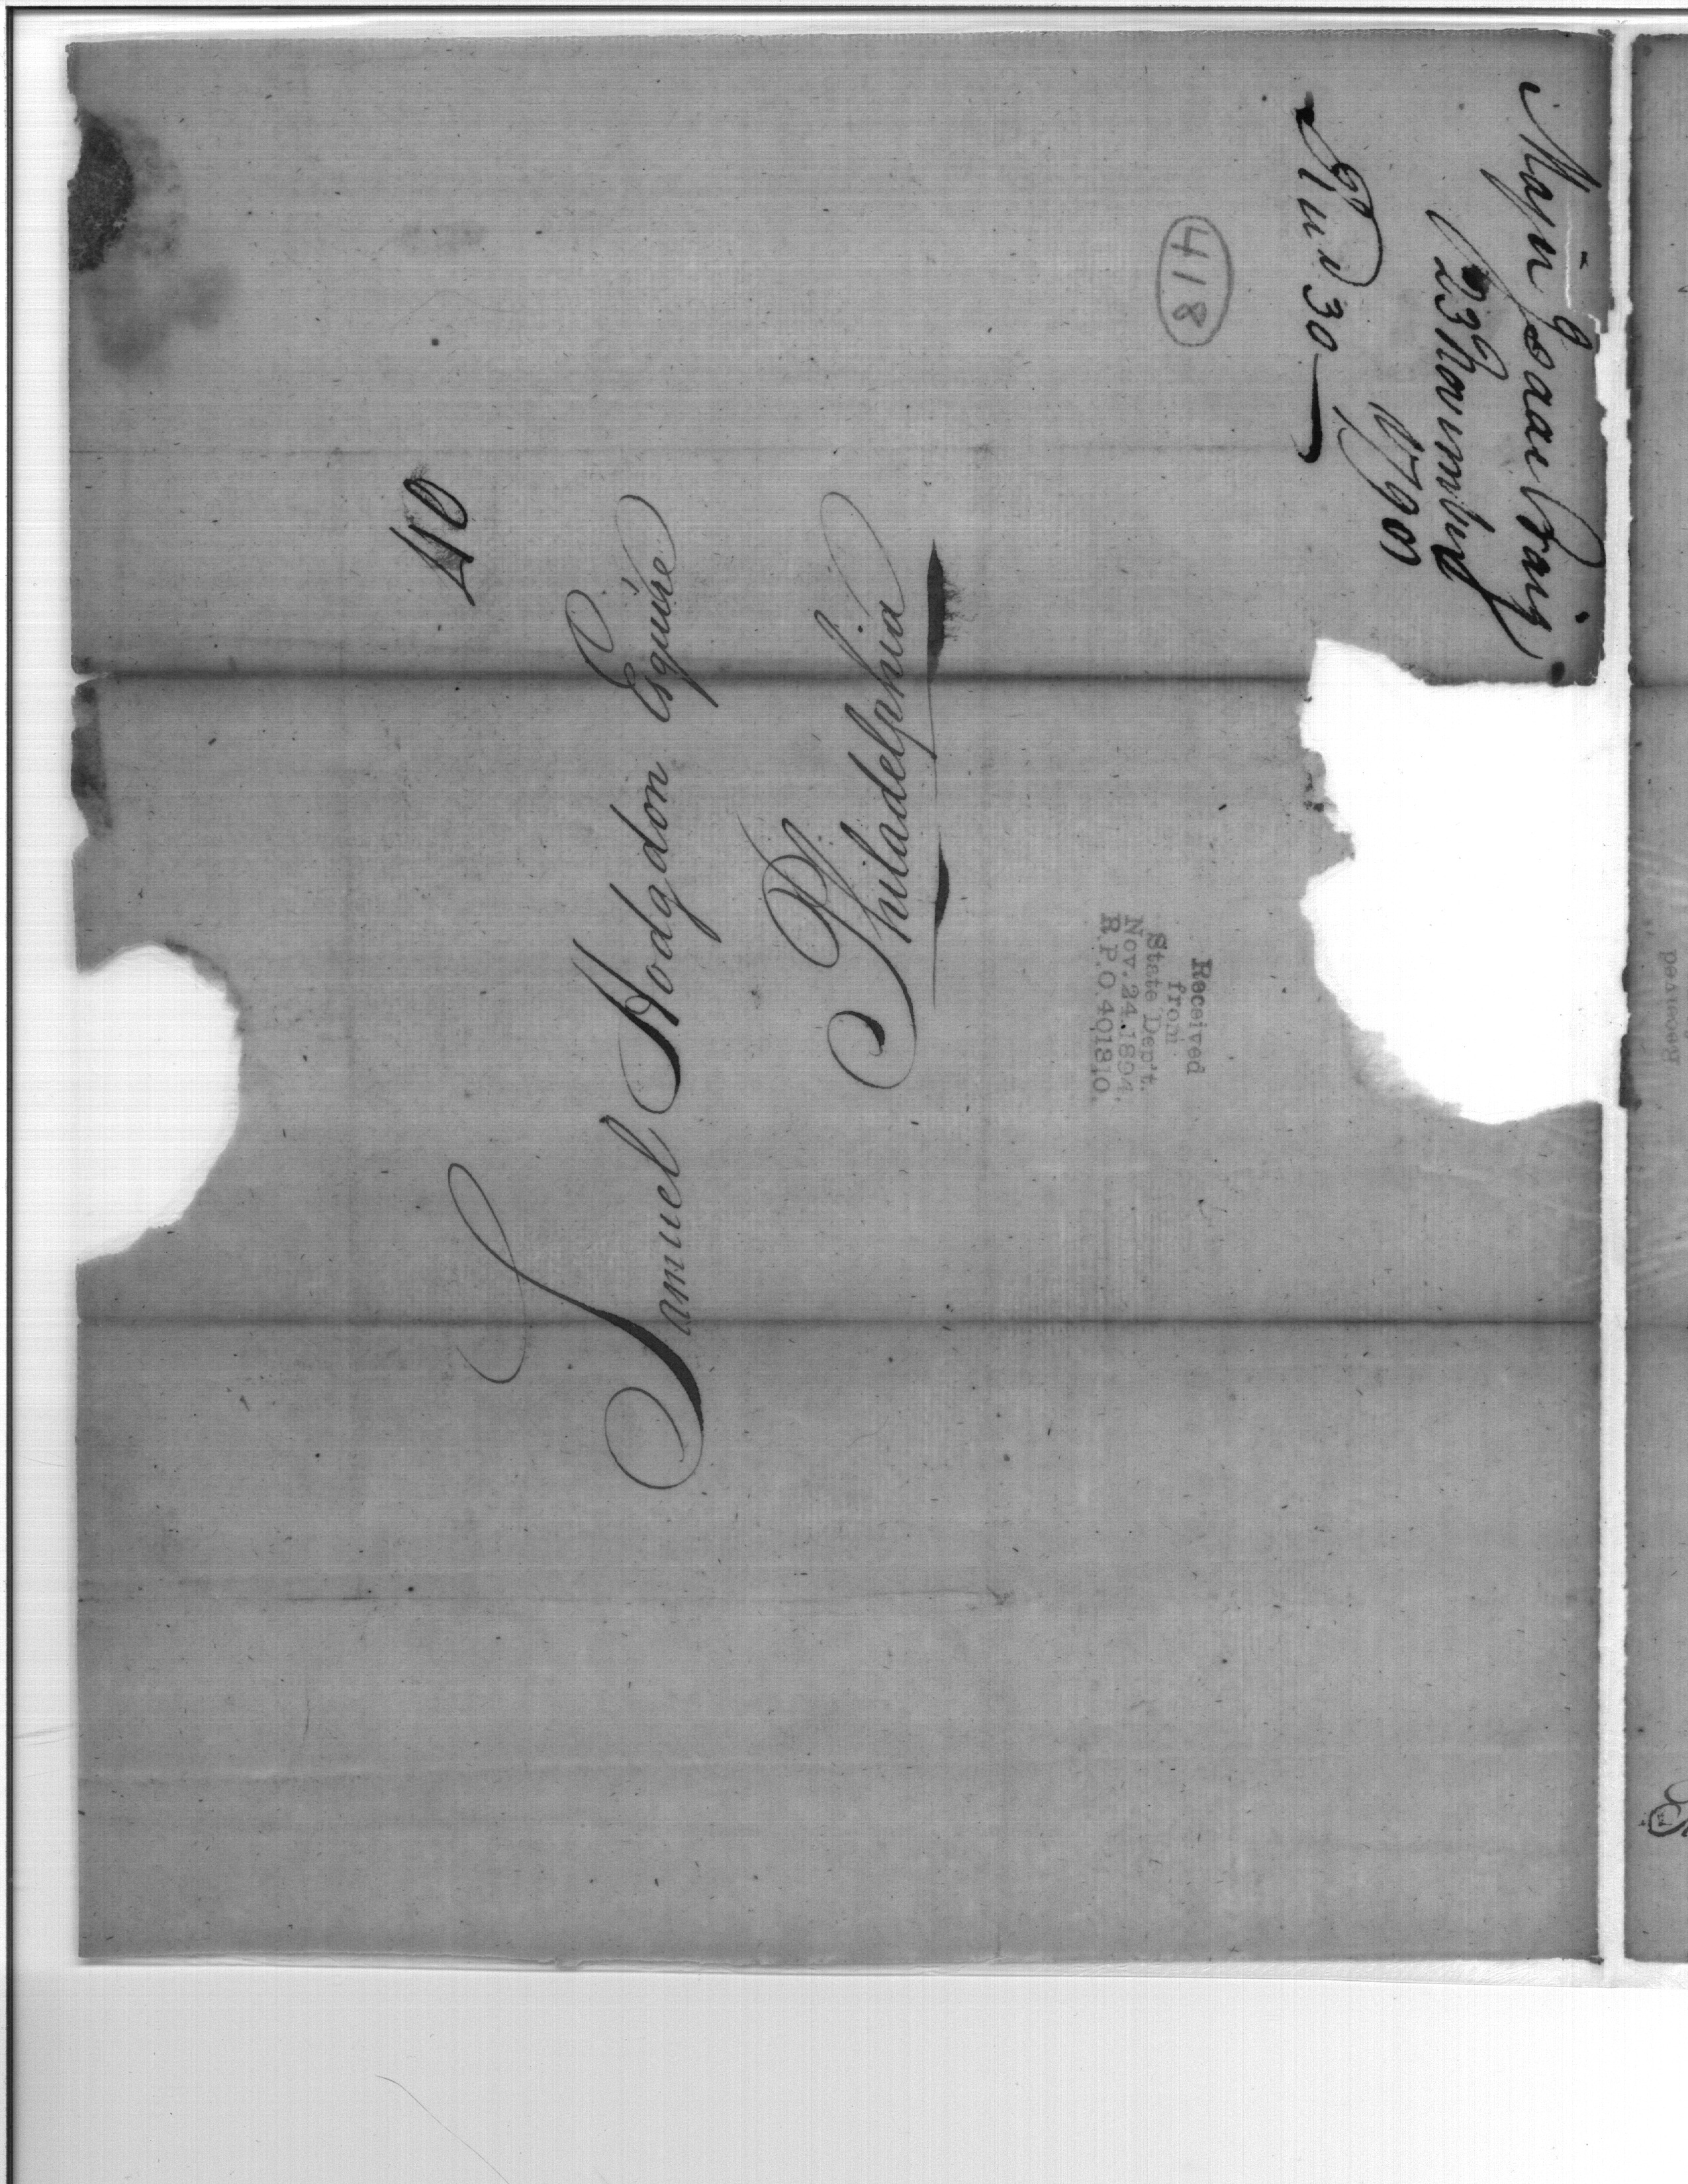 40
Samuel Hodgdon Esquire
Philadelphia
Major Isaac Craig
23 November
1790
Recd 30
418
Received
from
State Dep't.
Nov. 24, 1894,
R.P.O. 401310.
Received